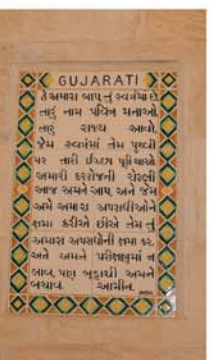 GUJARATI
હે અમારા બાપ તું સ્વર્ગમાં છે.
તારૂં નામ પવિત્ર મનાઓ.
તારૂં રાજ્ય આવો.
જેમ સ્વર્ગમાં તેમ પૃથ્વી
પર તારી ઈચ્છા પૂરી થાઓ
અમારી દરરોજની રોટલી
આજ અમને આપ અને જેમ
અમે અમારા અપરાધીઓને
ક્ષમા કરીએ છીએ તેમ તું
અમારા અપરાધોની ક્ષમા કર.
અને અમને પરીક્ષણમાં ન
લાવ, પણ ભૂંડાથી અમને
બચાવ. આમીન.